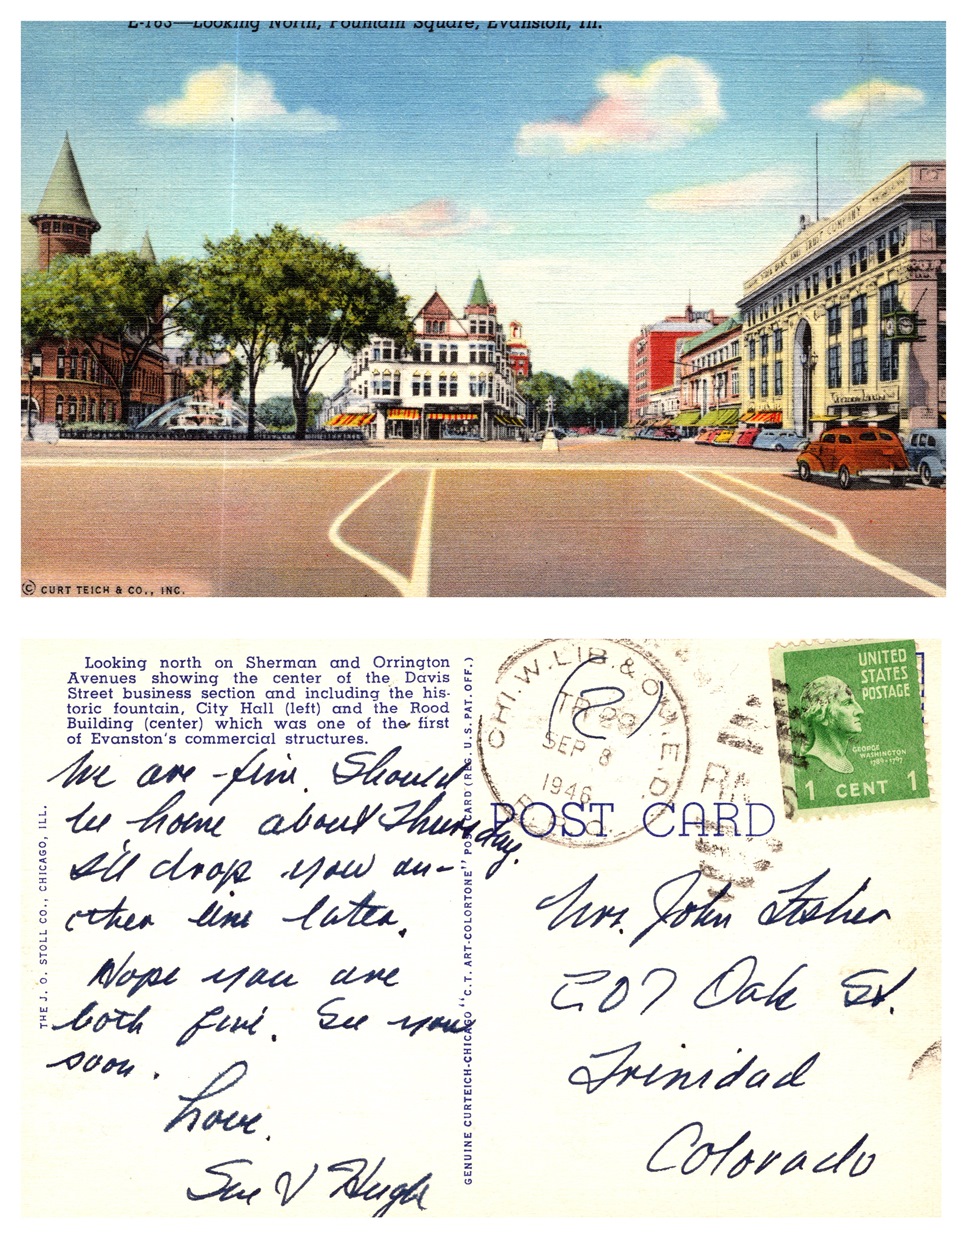 E-163—Looking North, Fountain Square, Evanston, Ill.
TRUST COMPANY
© CURT TEICH & CO., INC.
Looking north on Sherman and Orrington
Avenues showing the center of the Davis
Street business section and including the his-
toric fountain, City Hall (left) and the Rood
Building (center) which was one of the first
of Evanston's commercial structures.
We are fine. Should
be home about Thursday.
I'll drop you an-
other line later.
Hope you are
both fine. See you
soon.
Love.
Sue V Hugh
THE J. O. STOLL CO., CHICAGO, ILL.
GENUINE CURTEICH-CHICAGO "C.T. ART-COLORTONE" POST CARD (REG. U.S. PAT. OFF.)
CHI.W.LIB.& OM.E.D.
TR 22
SEP 8
1946
R.P.O.
UNITED
STATES
POSTAGE
GEORGE
WASHINGTON
1789-1797
1 CENT 1
POST CARD
Mrs. John Fisher
207 Oak St.
Trinidad
Colorado